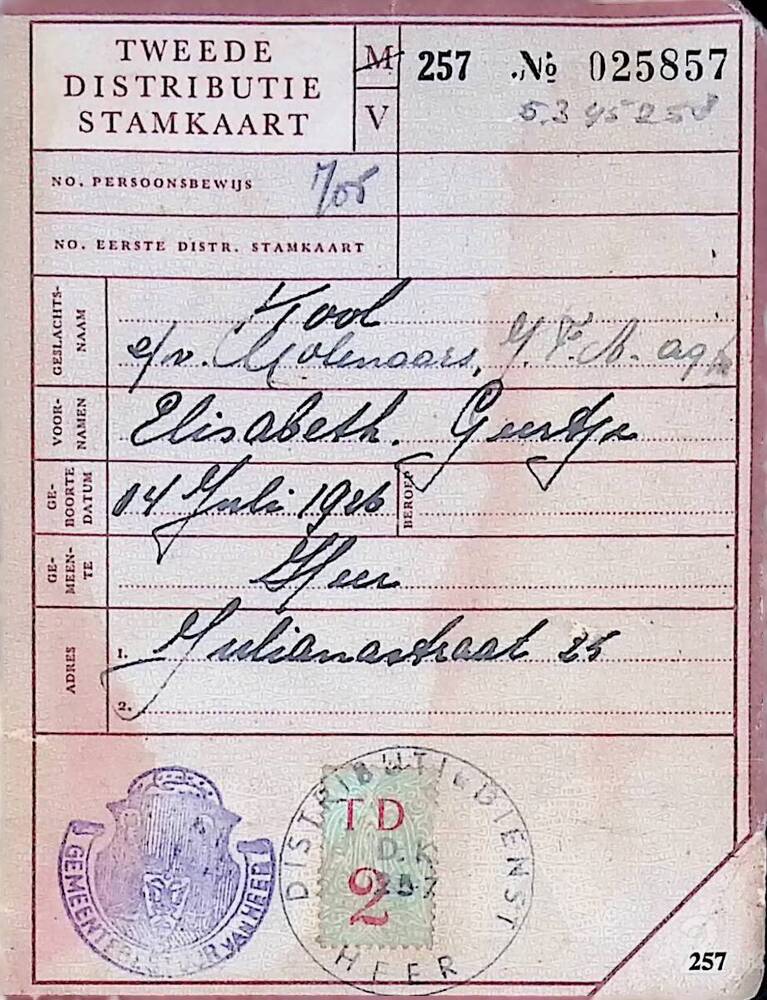 TWEEDE
DISTRIBUTIE
STAMKAART
M
V
257 No 025857
NO. PERSOONSBEWIJS
NO. EERSTE DISTR. STAMKAART
GESLACHTS-
NAAM
Kool
e/v. Molenaars,
VOOR-
NAMEN
Elisabeth. Geertje
GE-
BOORTE
DATUM
04 Juli 1926
BEROEP
GE-
MEEN-
TE
Heer
ADRES
1. Julianastraat 25
2.
GEMEENTEBESTUUR VAN HEER
DISTRIBUTIEDIENST
HEER
TD
2
257